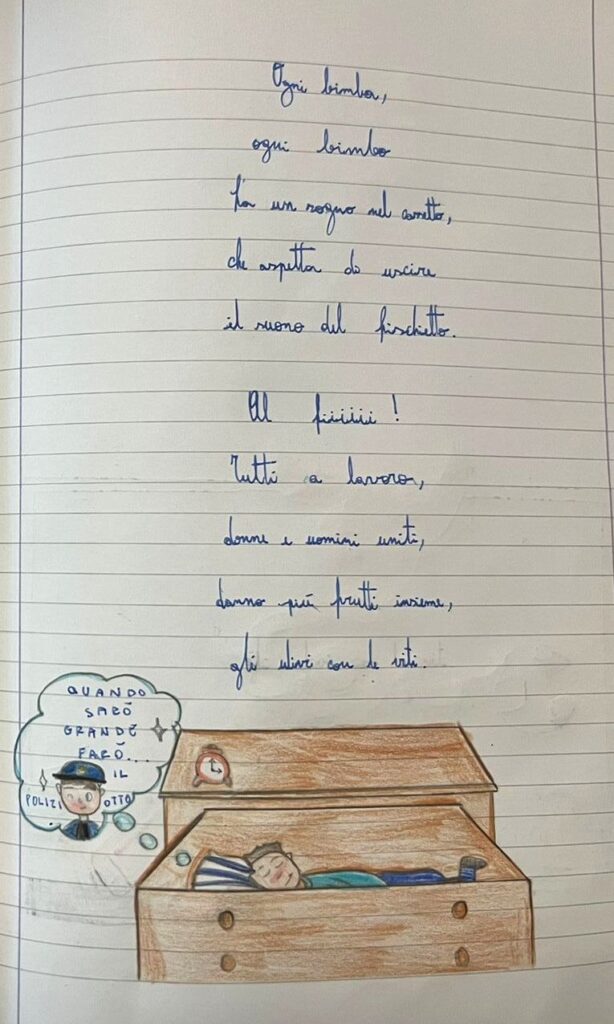 Ogni bimba,
ogni bimbo
ha un sogno nel cassetto,
che aspetta da uscire
il suono del fischietto.
Al fiiiiii!
Tutti a lavoro,
donne e uomini uniti,
danno più frutti insieme,
gli ulivi con le viti.
QUANDO
SARŌ
GRANDE
FARŌ...
IL
POLIZIOTTO